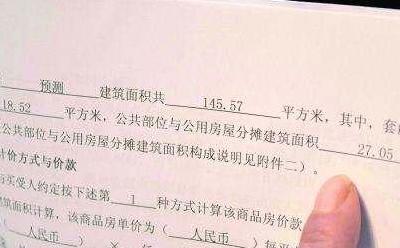 预测 建筑面积共 145.57 平方米，其中，套
18.52 平方米，公共部位与公用房屋分摊建筑面积 27.05
公共部位与公用房屋分摊建筑面积构成说明见附件二）。
计价方式与价款
与买受人约定按下述第 1 种方式计算该商品房价款
建筑面积计算，该商品房单价为（人民币）每平
（人民币）